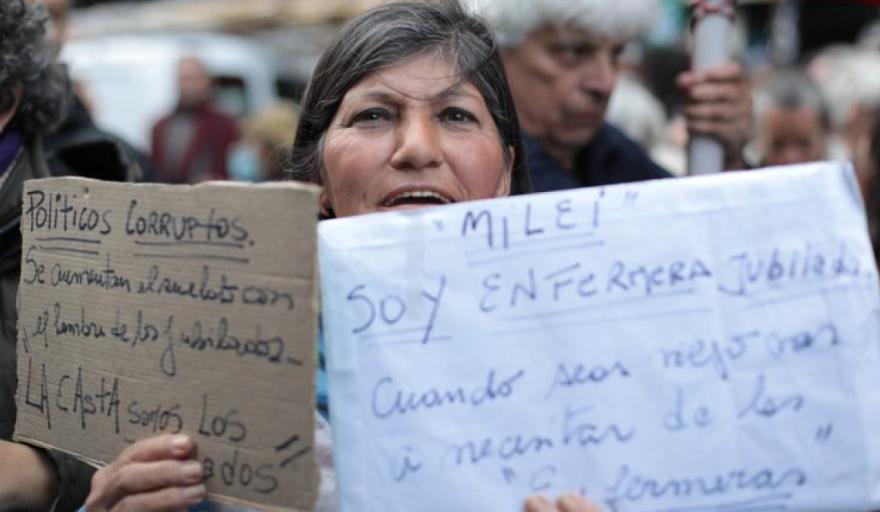 Políticos CORRUPTOS.
Se aumentan el sueldo con
el hambre de los Jubilados_
LA CAStA somos LOS
"MILEi"
SOY ENFERMERA Jubilada.
Cuando seas viejo vas
a necesitar de las
fermeras"